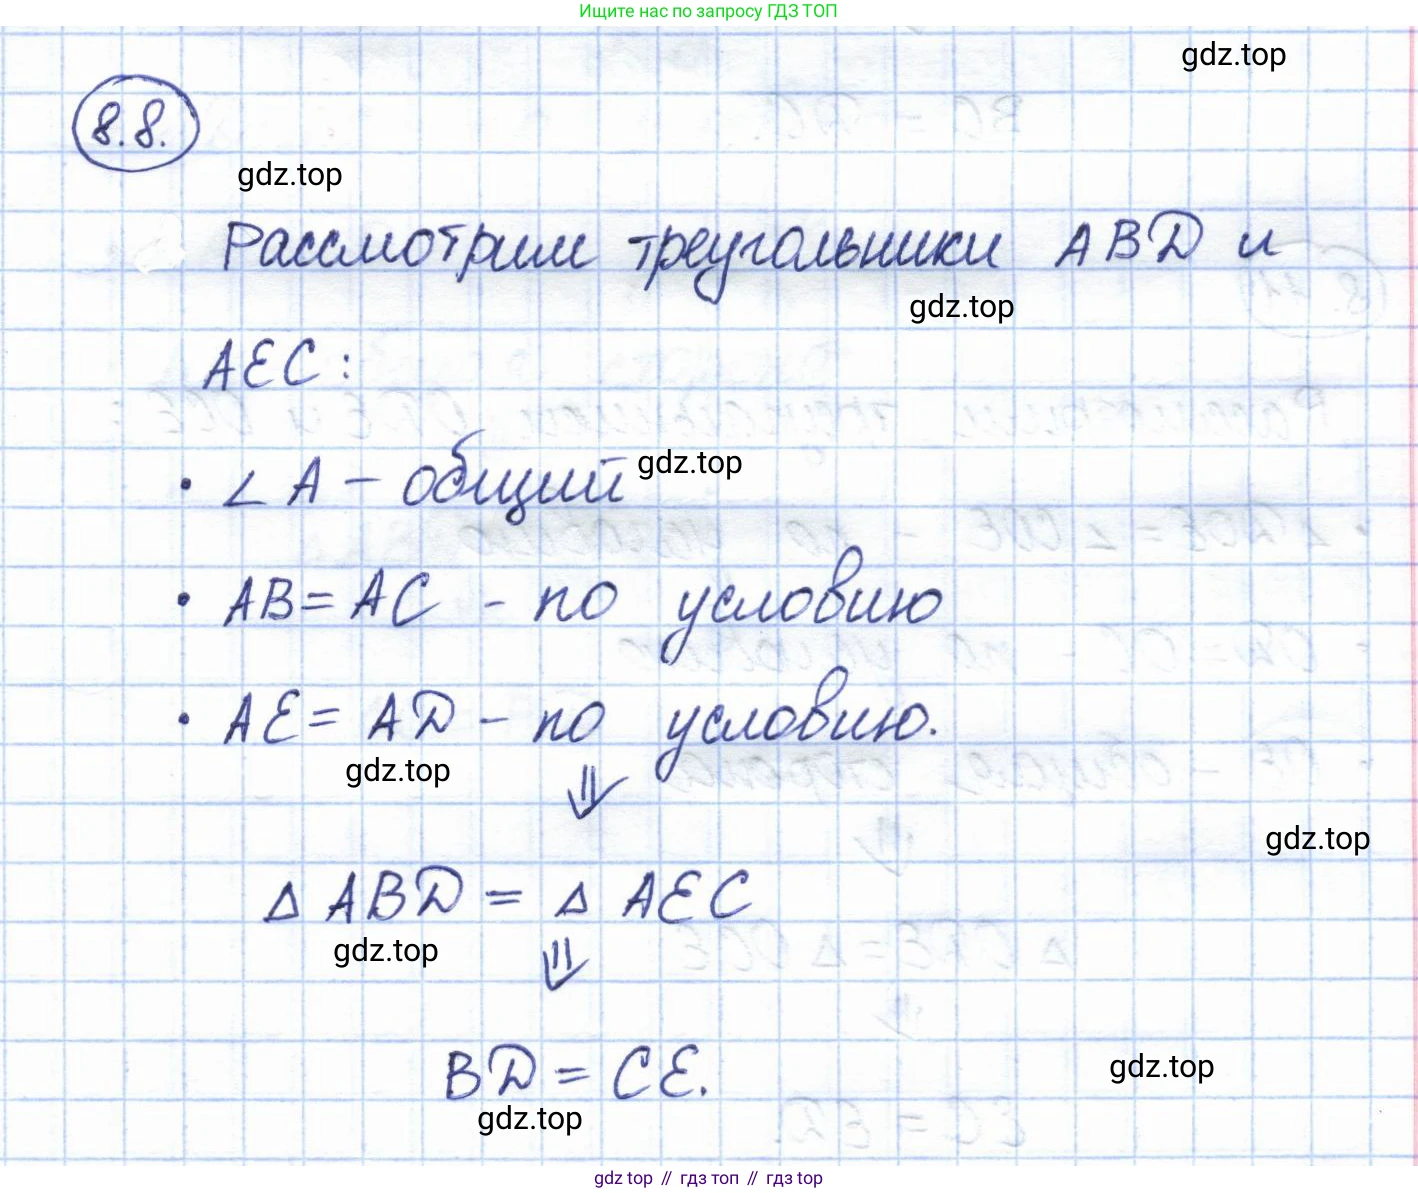 Ищите нас по запросу ГДЗ ТОП
gdz.top
8.8.
gdz.top
Рассмотрим треугольники ABD и
gdz.top
AEC:
• ∠ A – общий
gdz.top
• AB = AC – по условию
• AE = AD – по условию.
gdz.top
⇓
gdz.top
Δ ABD = Δ AEC
gdz.top
⇓
BD = CE.
gdz.top
gdz.top
gdz top // гдз топ // гдз top